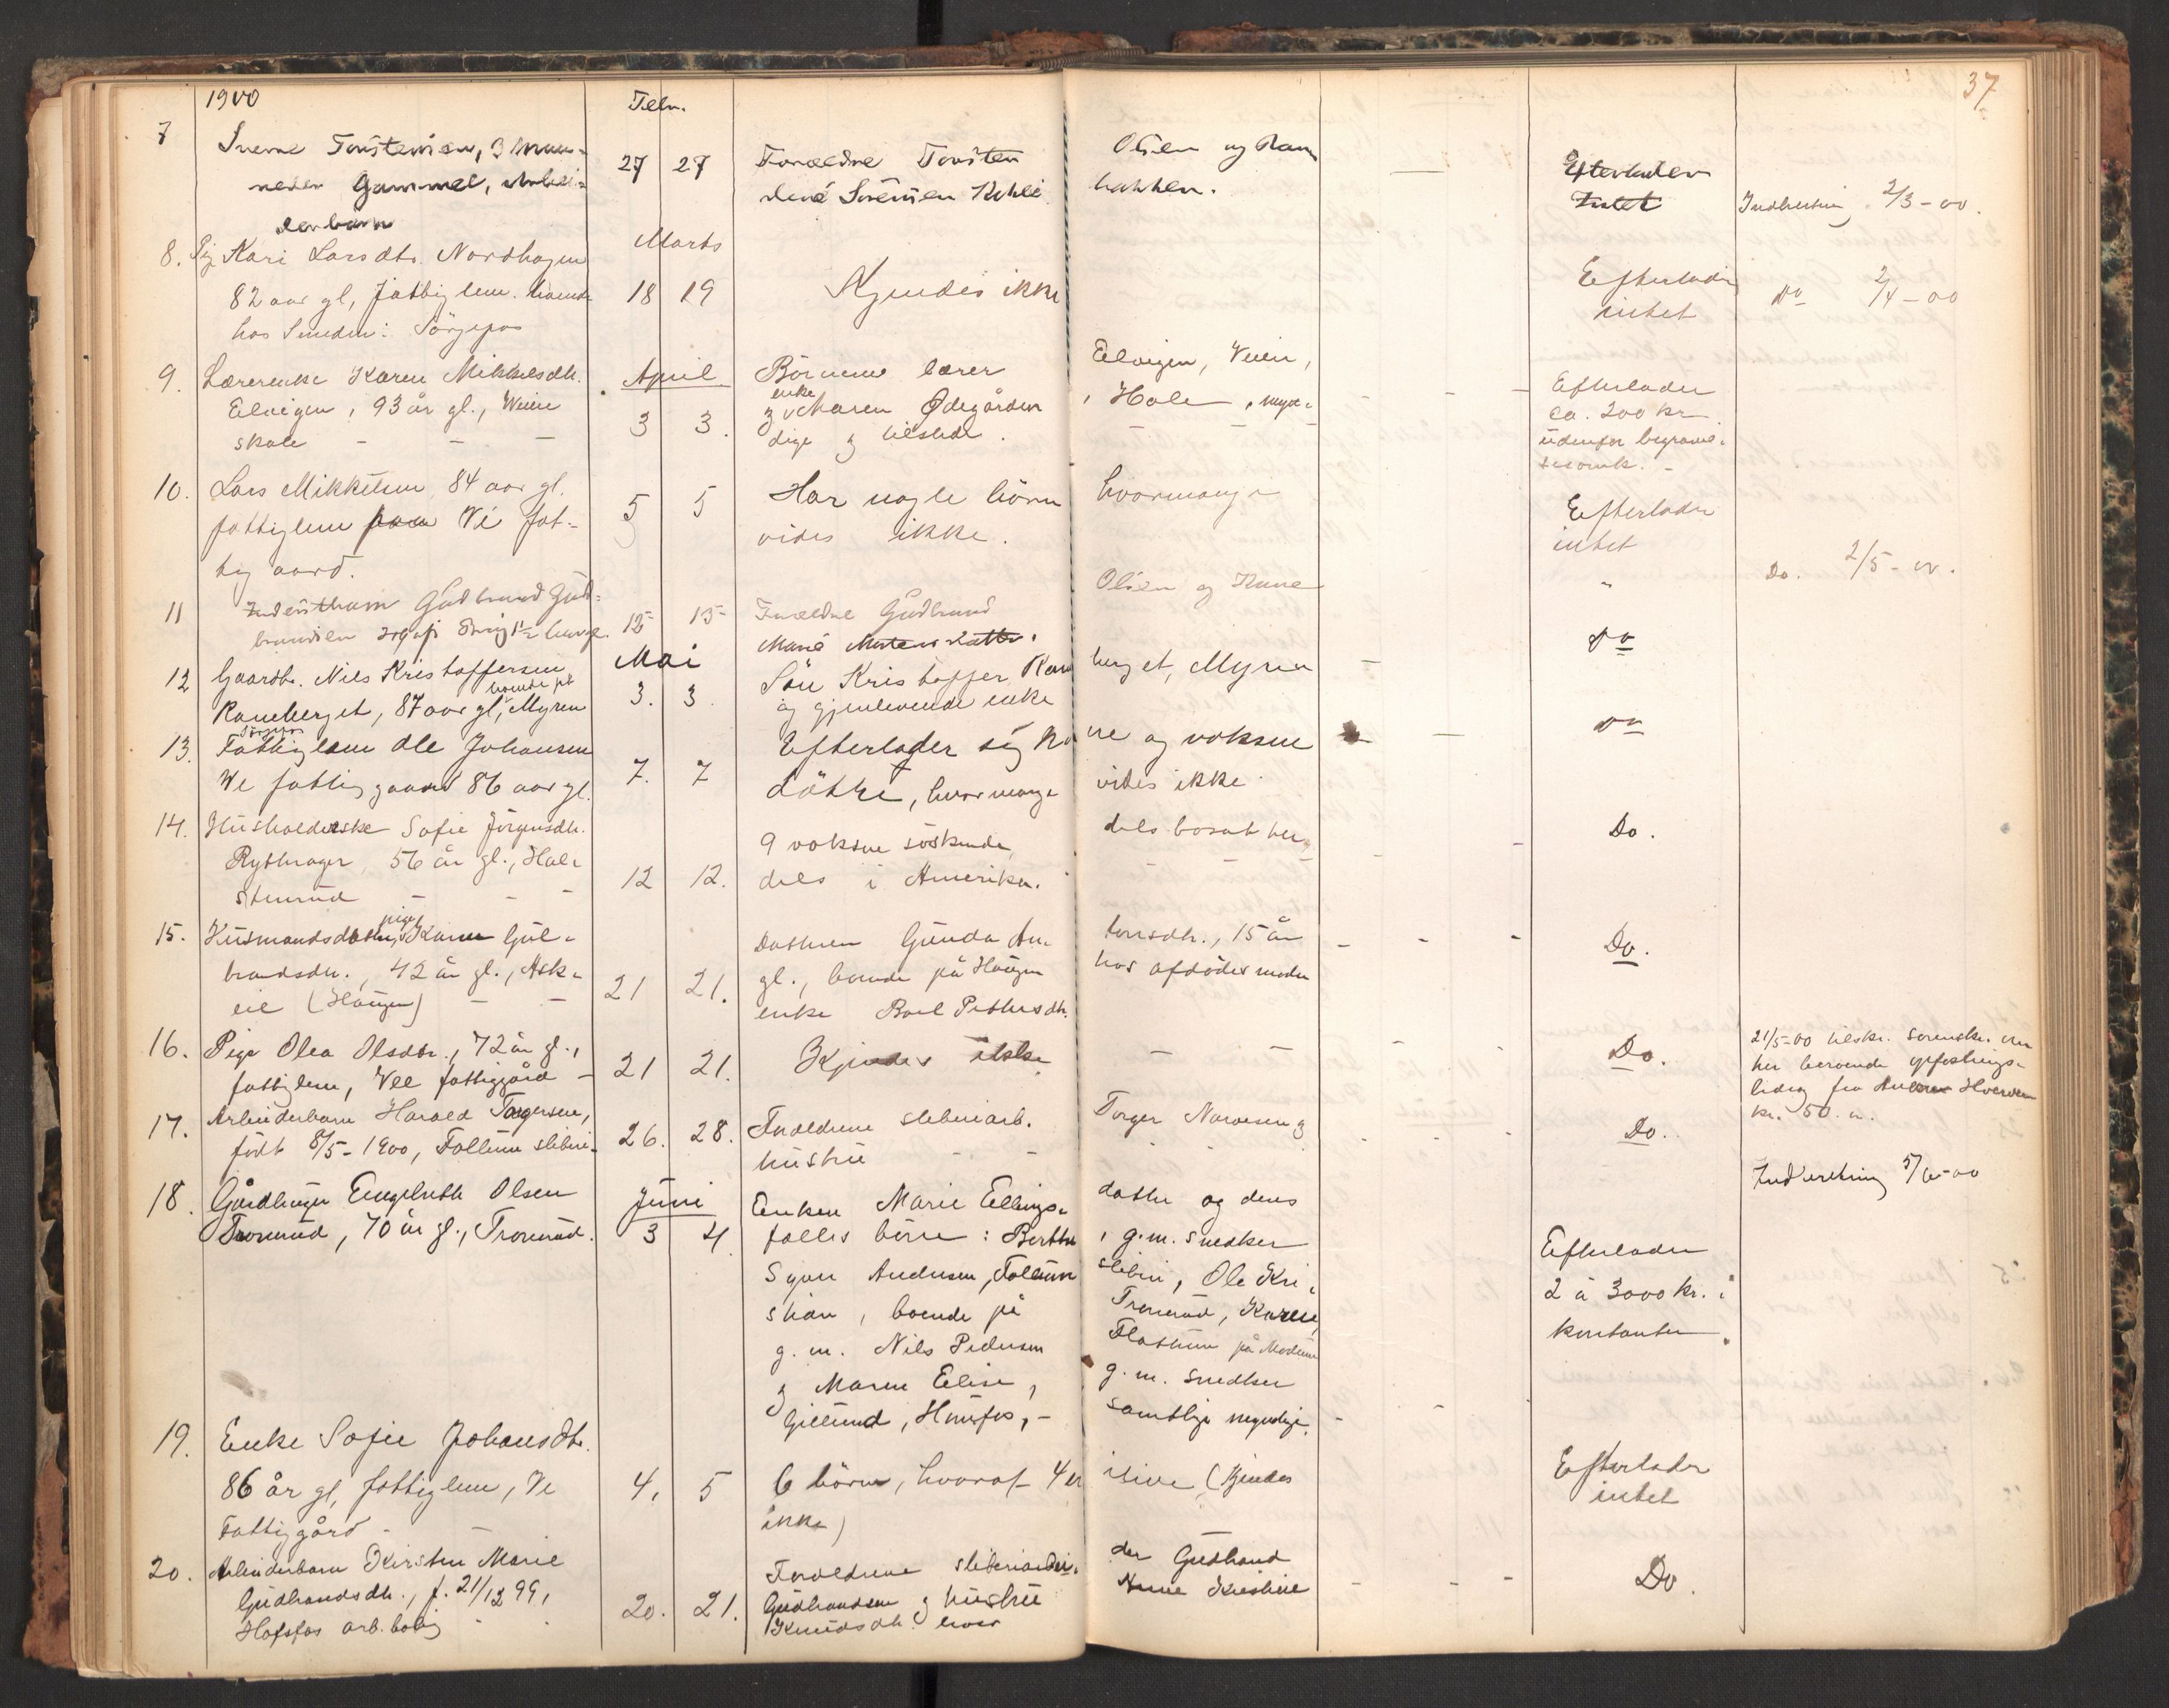 37
1900 Febr.
7 Sverre Torstensen, 3 maa- 27 27 Forældre Torsten Olsen og Efterlader
neder Gammel, Arbei- Sørensen hakken. Intet Indberetning 2/3-00.
derbarn
8. Pig Kari Larsdtr. Nordhagen Marts
82 aar gl, fattiglem. boende 18 19 Kjendes ikke Efterlader Do 2/4-00
hos Smeden: Sörgefos intet
9. Lærerenke Karen Mikkelsdtr. April Börnene lærer Elvigen, Veien,
Elvigen, 93 år gl., Weien 3 3. og enke Maren Ødegården, Hole, myn- Efterlader ca. 200 kr
skole - - - dige og tilstede. udenfor begravel-
sesomk. -
10. Lars Mikkelsen 84 aar gl. 5 5 Har nogle börn hvormange Efterlader
fattiglem paa Ve fat- vides ikke. intet
tig aard. Do. 2/5-00.
11 Gudbrand Gud- 15 15 Forældre Gudbrand Olsen og "
brandsen Marie
12 Gaardbr. Nils Kristoffersen Mai Sön Kristoffer Ram berget, Myren - Do
Ramberget, 87 aar gl, boende på Myren 3. 3. og gjenlevende enke
13. Fattiglem Ole Johansen Efterlader sig ko ne og voksne - Do
We fattiggaard 86 aar gl. 7. 7 döttre, hvormange vides ikke
14. Husholderske Sofie Jörgensdtr. 9 voksne söskende, dels bosat her, Do.
Rytterager, 56 år gl., Hal- 12 12. dels i Amerika.
stenrud - - -
15. Husmandsdatter, pige Karen Gul- Datteren Gunda An- tonsdtr., 15 år - - - Do.
brandsdtr., 42 år gl., Ask- 21 21. gl., boende på Haugen hos afdödes moder
eie (Haugen) - - enke Boel Pettersdtr.
16. Pige Olea Olsdtr., 72 år gl., 21 21. Kjendes ikke - - - - Do. 21/5-00 tilskr. sorenskr. om
fattiglem, Vee fattiggård - her beroende opfostrings-
bidrag fra Hverven
kr. 50. -.
17. Arbeiderbarn Harald Torgersen, 26. 28. Forældrene sliberiarb. Torger Narvesen og Do.
födt 8/5-1900, Follum sliberi. hustru - -
Indberetning 5/6-00
18. Gårdbruger Engebreth Olsen Juni Enken Marie Ellings- datter og deres
Tronrud, 70 år gl., Tronrud. 3 4. fælles börn: Berthe, g.m. snedker Efterlader
Syver Andersen, Follum sliberi, Ole Kri- 2 à 3000 kr. i
stian, boende på Tronrud, Karen, kontanter.
g. m. Nils Pedersen Flattum på Modum
og Maren Elise, g. m. snedker
Gillund, Hönefos, - samtlige myndige. - -
19. Enke Sofie Johansdtr. Efterlader
86 år gl, fattiglem, Ve 4. 5 6 börn, hvoraf 4 er ilive (Kjendes intet
Fattiggård - - ikke)
20. Arbeiderbarn Kirsten Marie Forældrene sliberiarbei- der Gudbrand Do.
Gudbrandsdtr., f. 21/12 99, 20. 21. Gudbrandsen og hustru Anne Kristine - - -
Hofsfos arb. bolig - - Knudsdtr.